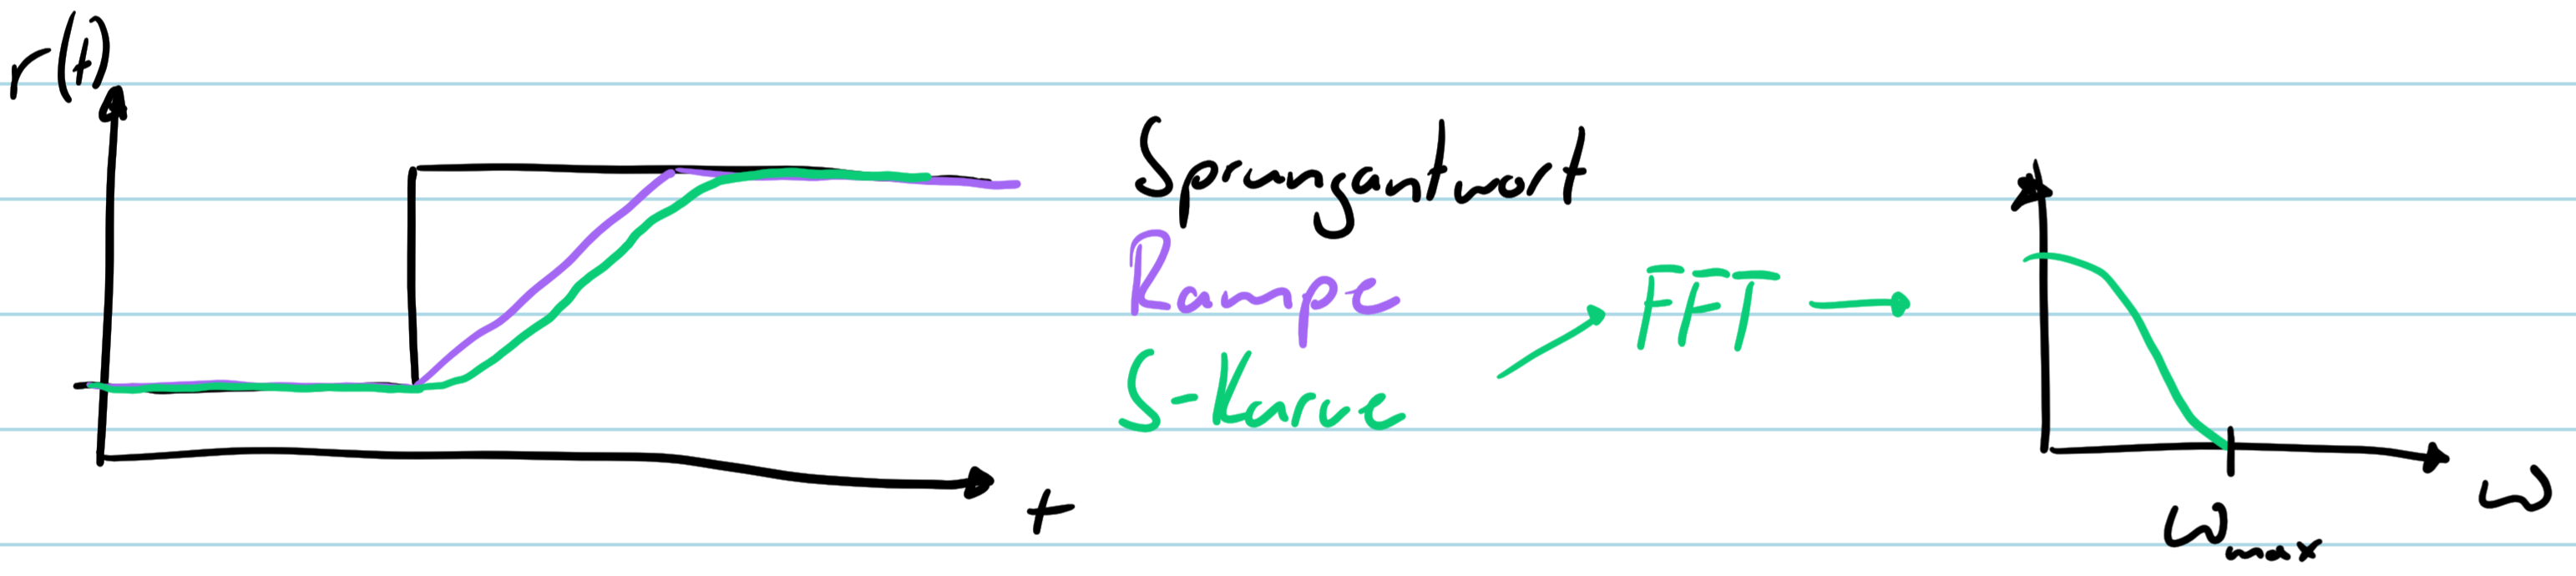 r(t)
Sprungantwort
Rampe
S-Kurve → FFT →
t
ω
ωmax